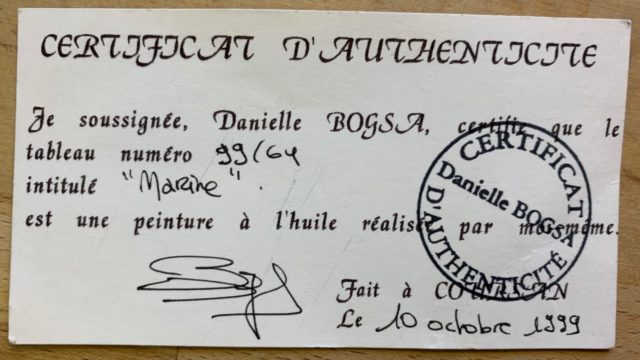 CERTIFICAT D'AUTHENTICITE
Je soussignée, Danielle BOGSA, certifie que le
tableau numéro 99/64
intitulé "Marine".
est une peinture à l'huile réalisée par moi-même.
CERTIFICAT
Danielle BOGSA
D'AUTHENTICITÉ
Fait à COURSAN
Le 10 octobre 1999